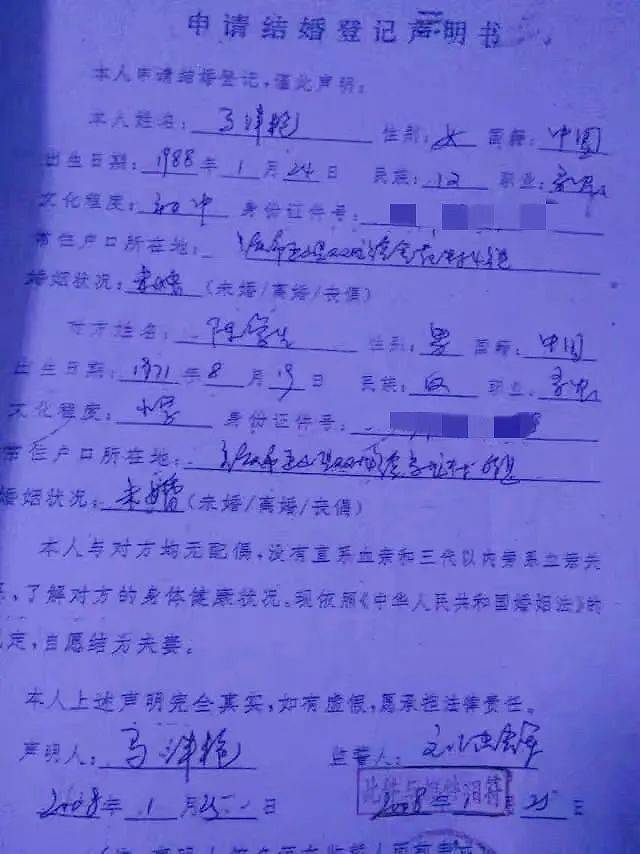 申请结婚登记声明书
本人申请结婚登记,谨此声明:
本人姓名: 马泮艳 性别: 女 国籍: 中国
出生日期: 1988 年 1 月 24 日 民族: 汉 职业:
文化程度: 初中 身份证件号:
常住户口所在地:
婚姻状况: 未婚 (未婚/离婚/丧偶)
对方姓名: 陈学生 性别: 男 国籍: 中国
出生日期: 1971 年 8 月 19 日 民族: 汉 职业:
文化程度: 小学 身份证件号:
常住户口所在地:
婚姻状况: 未婚 (未婚/离婚/丧偶)
本人与对方均无配偶,没有直系血亲和三代以内旁系血亲关
系,了解对方的身体健康状况。现依照《中华人民共和国婚姻法》的
规定,自愿结为夫妻。
本人上述声明完全真实,如有虚假,愿承担法律责任。
声明人: 马泮艳 监誓人:
2008 年 1 月 25 日 2008 年 月 25 日
此件与原件相符